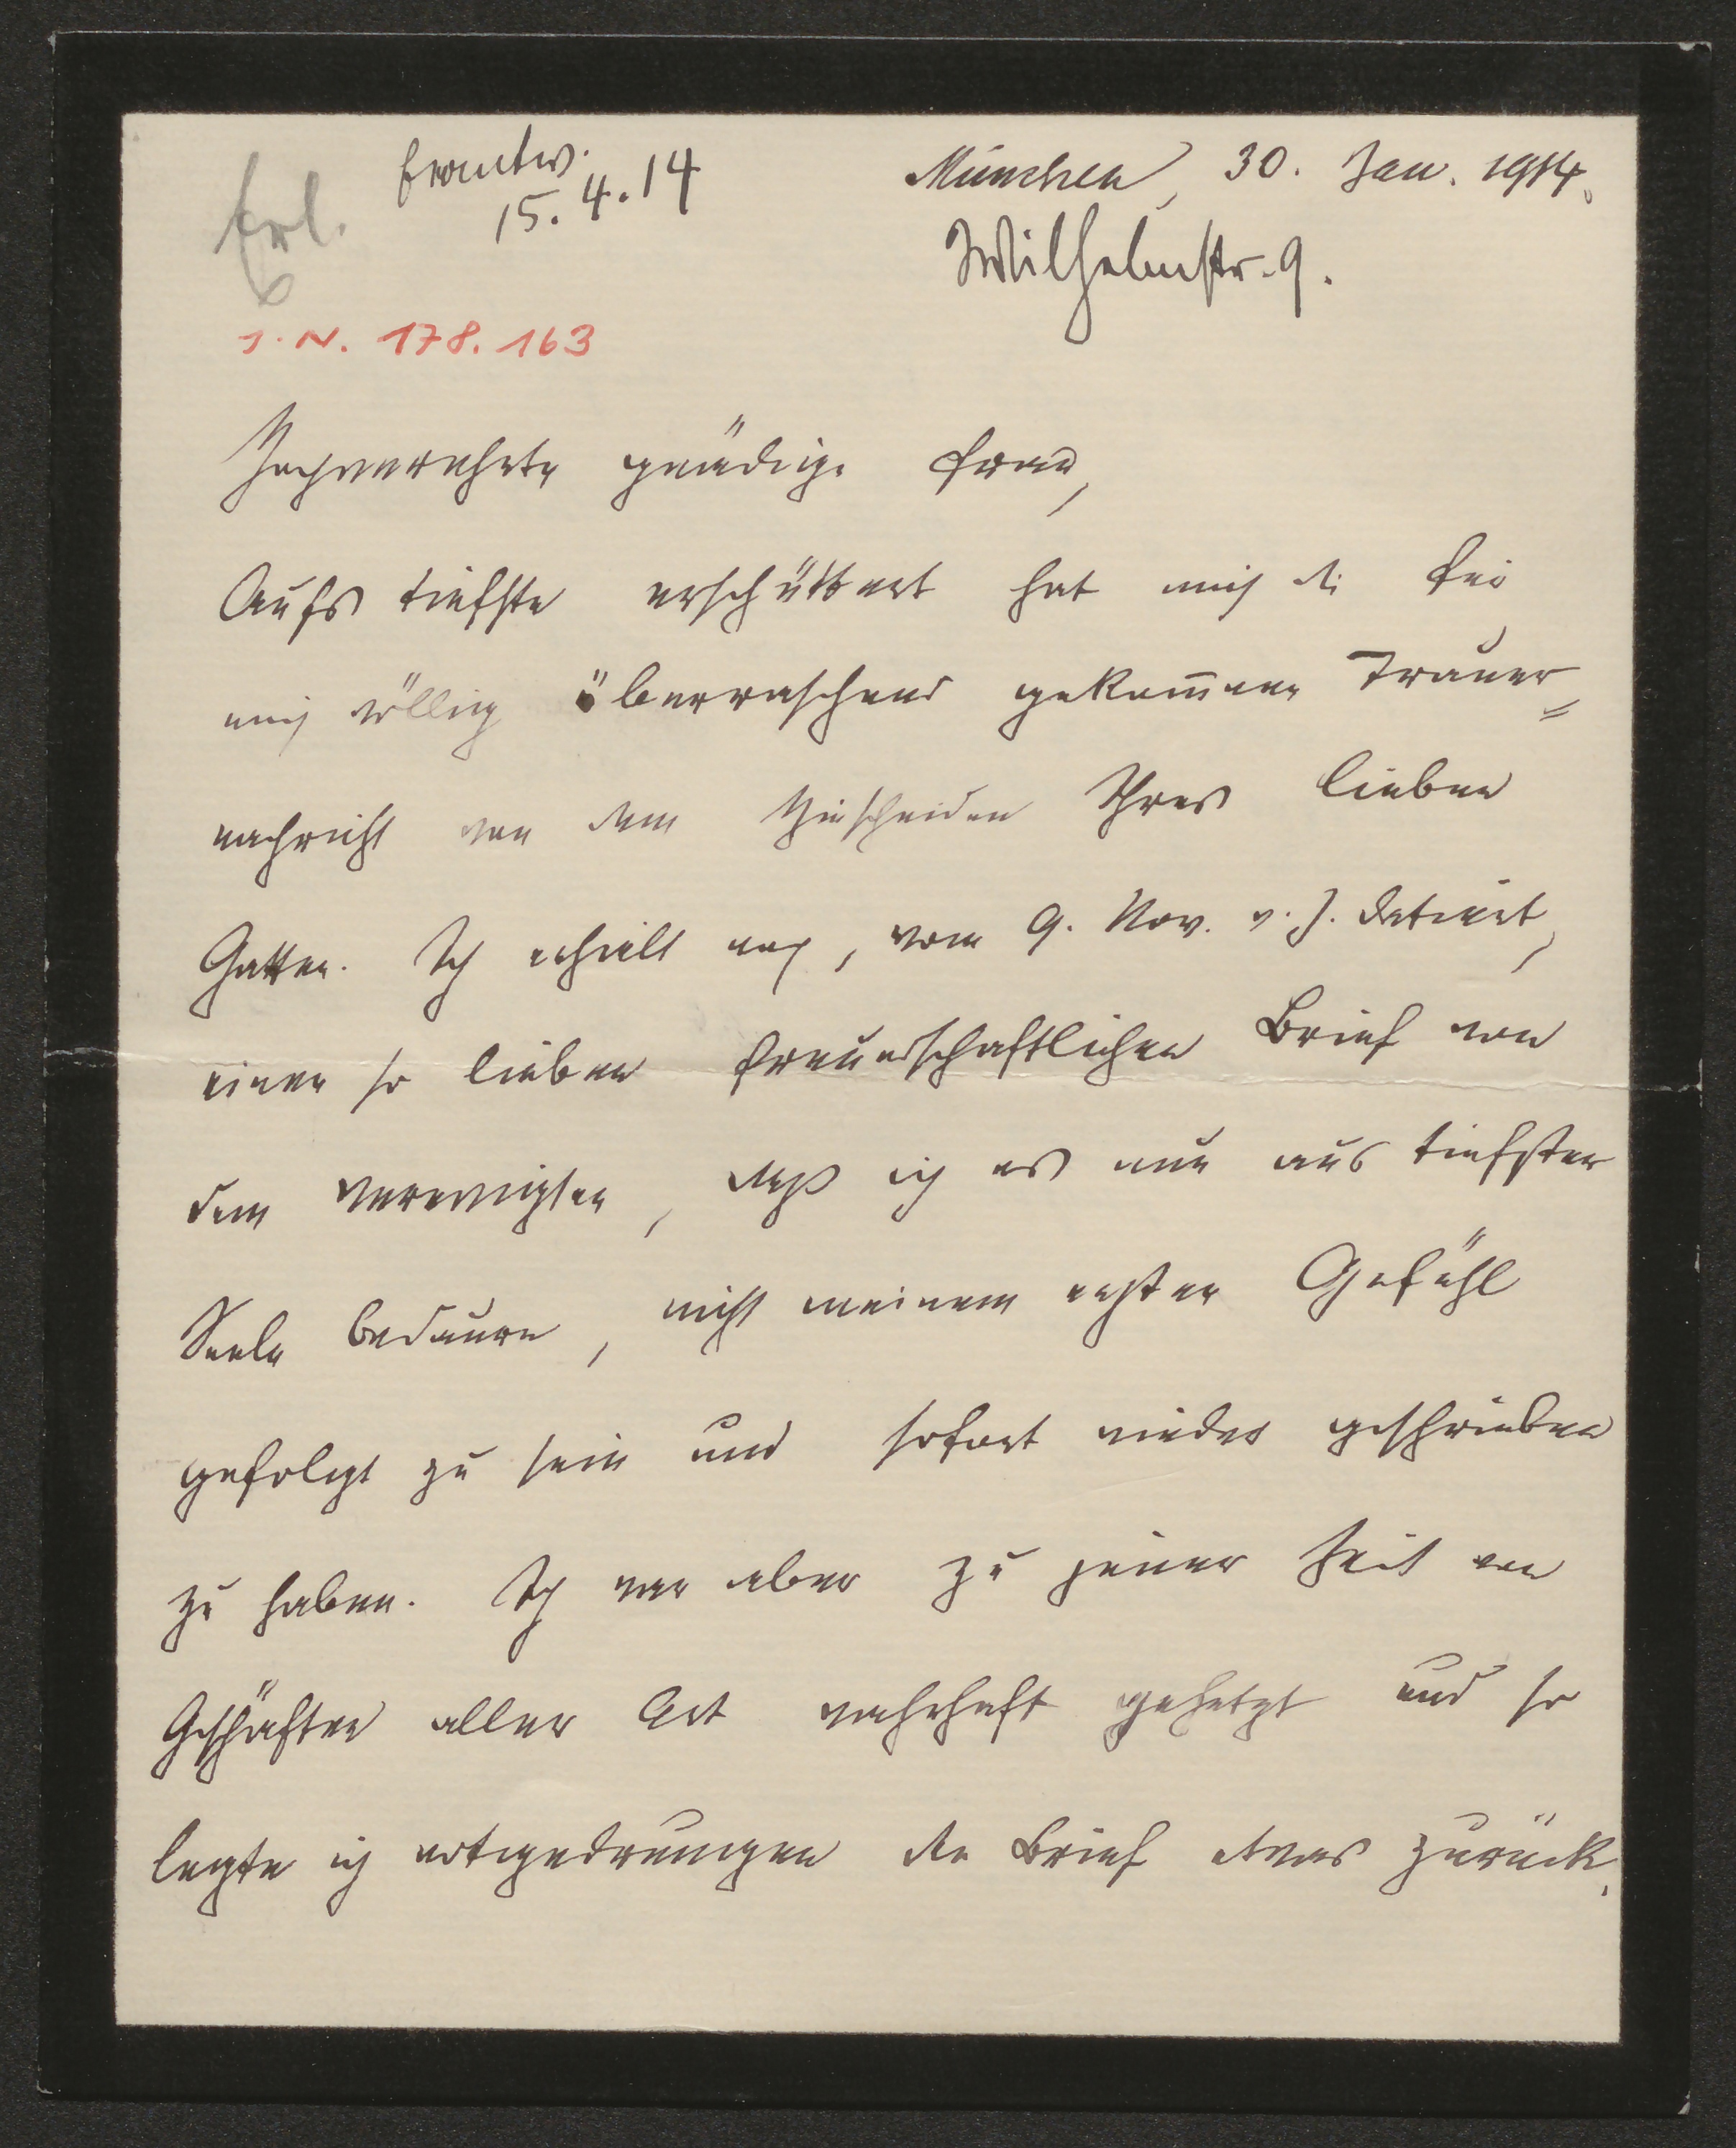 Erl. beantw.
15.4.14
München, 30. Jan. 1914.
Wilhelmstr. 9.
J. N. 178.163
Hochverehrte gnädige Frau,
Aufs tiefste erschüttert hat mich die für
mich völlig überraschend gekom̄ene Trauer=
nachricht von dem Hinscheiden Ihres lieben
Gatten. Ich erhielt noch, vom 9. Nov. v. J. datiert,
einen so lieben freundschaftlichen Brief von
dem Verewigten, daß ich es nun aus tiefster
Seele bedaure, nicht meinem ersten Gefühl
gefolgt zu sein und sofort wieder geschrieben
zu haben. Ich war aber zu jener Zeit von
Geschäften aller Art wahrhaft gehetzt und so
legte ich notgedrungen den Brief etwas zurück,